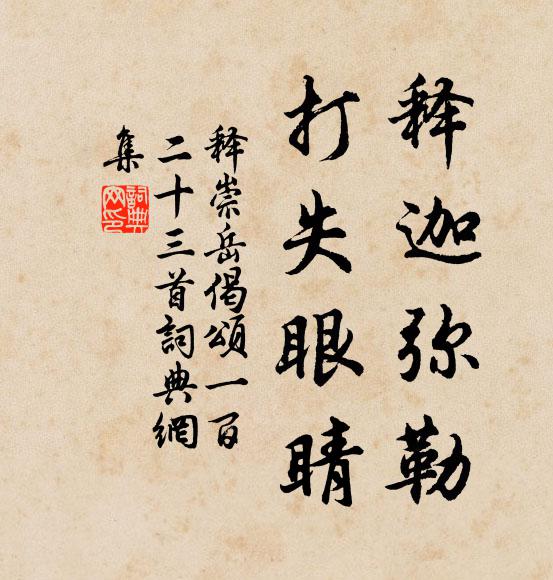 释迦弥勒
打失眼睛
释崇岳偈頌一百
二十三首詞典網
集
詞典網印